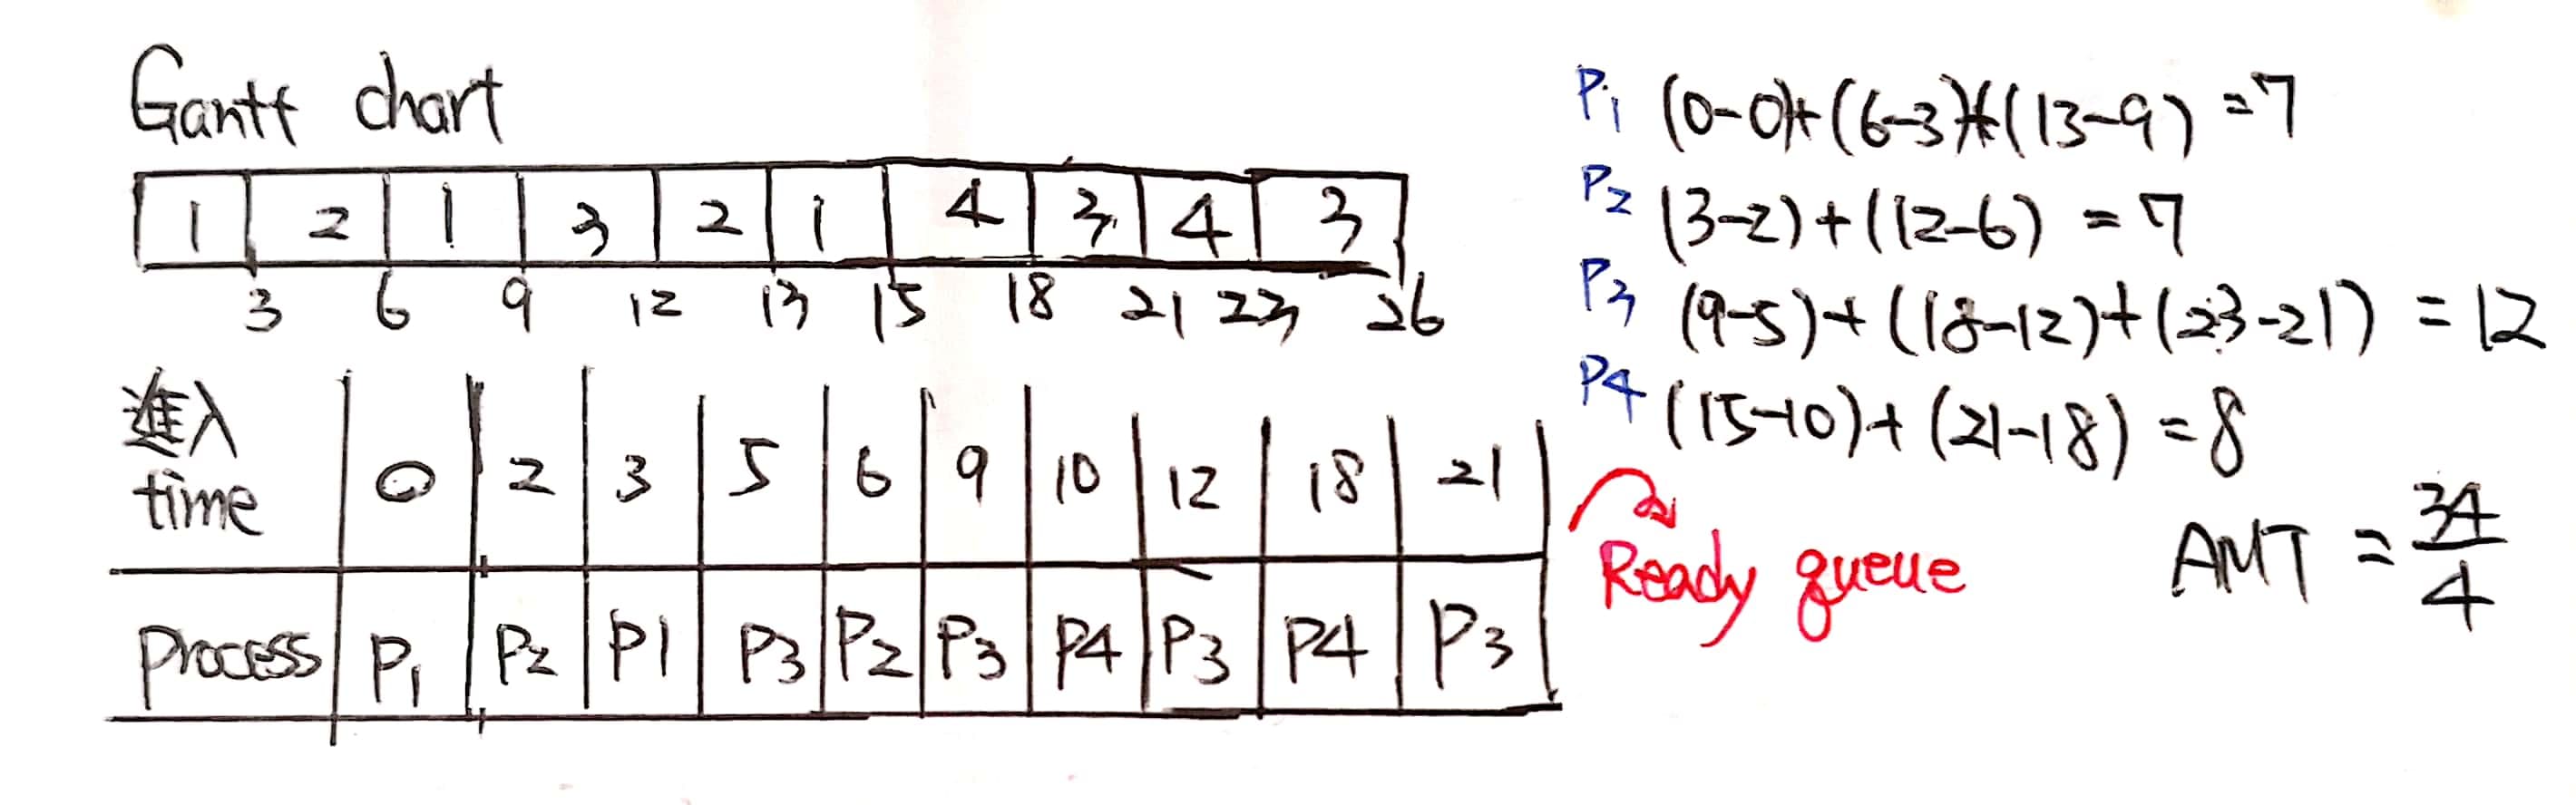 Gantt chart
1 2 1 3 2 1 4 3 4 3
3 6 9 12 13 15 18 21 23 26
進入 time 0 2 3 5 6 9 10 12 18 21
Process P1 P2 P1 P3 P2 P3 P4 P3 P4 P3
P1 (0-0)+(6-3)+(13-9) =7
P2 (3-2)+(12-6) =7
P3 (9-5)+(18-12)+(23-21) =12
P4 (15-10)+(21-18) =8
Ready queue
AMT = 34/4